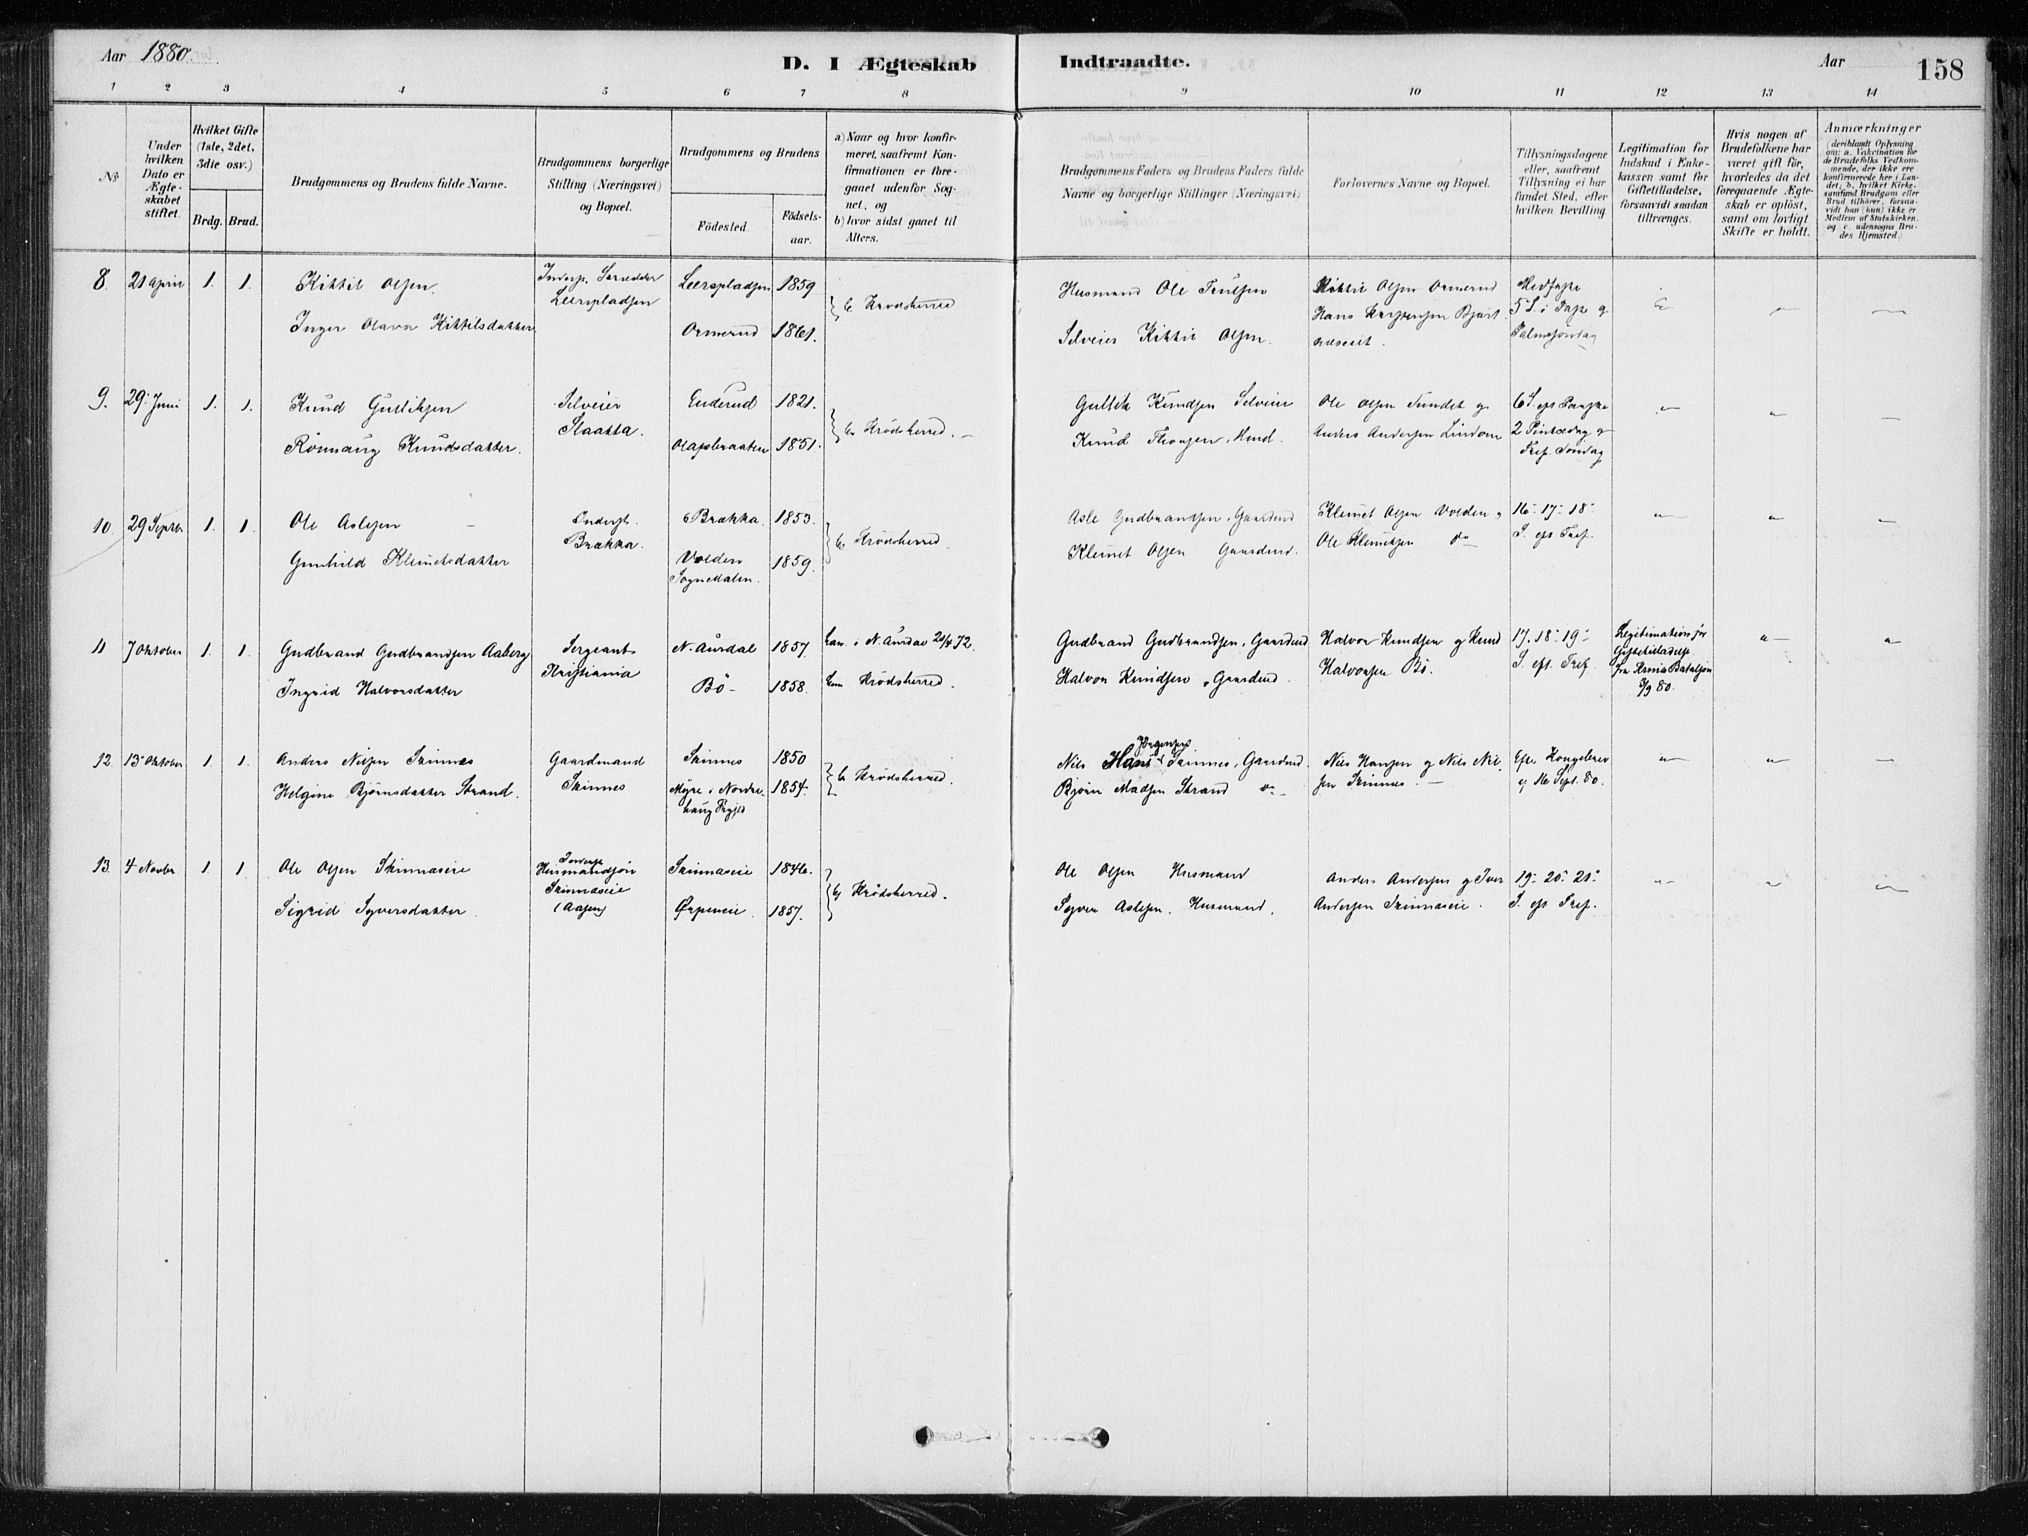 Aar 1880.
D. I Ægteskab Indtraadte.
Aar
158
1 2 3 4 5 6 7 8 9 10 11 12 13 14
No
Under hvilken Dato er Ægteskabet stiftet.
Hvilket Gifte (1ste, 2det, 3die osv.)
Brdg. Brud.
Brudgommens og Brudens fulde Navne.
Brudgommens borgerlige Stilling (Næringsvei) og Bopæl.
Brudgommens og Brudens
Födested.
Födsels-aar.
a) Naar og hvor konfirmeret, saafremt Konfirmationen er foregaaet udenfor Sognet, og
b) hvor sidst gaaet til Alters.
Brudgommens Faders og Brudens Faders fulde Navne og borgerlige Stillinger (Næringsvei)
Forlovernes Navne og Bopæl.
Tillysningsdagene eller, saafremt Tillysning ei har fundet Sted, efter hvilken Bevilling
Legitimation for Indskud i Enkekassen samt for Giftetilladelse, forsaavidt saadan tiltrænges.
Hvis nogen af Brudefolkene har været gift för, hvorledes da det foregaaende Ægteskab er oplöst, samt om lovligt Skifte er holdt.
Anmærkninger (deriblandt Oplysning om: a. Vakcination for de Brudefolks Vedkommende, der ikke ere konfirmerede her i Landet; b. hvilket Kirkesamfund Brudgom eller Brud tilhörer, forsaavidt han (hun) ikke er Medlem af Statskirken, og c. udensogns Brudes Hjemsted.)
8. 21 April 1. 1. Kittil Olsen. Leerspladsen Leerspladsen 1859 b Krødsherred Husmand Ole Trulsen Kittil Olsen Ormerud
Inger Olava Kittilsdatter Ormerud 1861. Selveier Kittil Olsen. Hans
5 S. i Faste og Palmesöndag
9. 29. Juni 1. 1. Knud Gulliksen Selveier Enderud 1821. b. Krødsherred. Gullik Knudsen Selveier Ole Olsen Sundet og 6 S. eft Paaske
Rönnaug Knudsdatter. Slaatta. Olafsbraaten 1851. Knud Anders Andersen Lindom 2 Pintsedag og
Tref. Söndag
10. 29 Septbr 1. 1. Ole Aslesen Brækka. Brækka. 1853. b. Krødsherred. Asle Gudbrandsen, Gaardmd Klemet Olsen Volden og 16. 17. 18.
Gunhild Klemetsdatter Volden Sognedalen. 1859. Klemet Olsen Gaardmd. Ole Klemetsen do S. eft Tref.
11 7 Oktober 1. 1. Gudbrand Gudbrandsen Aaberg Sergeant N. Aurdal 1857. i N. Aurdal Gudbrand Gudbrandsen, Gaardmd Halvor Knudsen og Knud 17. 18. 19. Legitimation for
Ingrid Halvorsdatter Kristiania Bö 1858. Krødsherred. Halvor Knudsen, Gaardmd. Halvorsen Bö. S. eft. Tref. Giftetilladelse
fra Krnia Bataljon 3/9 80.
12. 13 Oktober 1. 1. Anders Nilsen Skinnes Gaardmand Skinnes 1850 b Krødsherred. Nils Hans Jörgensen Skinnes, Gaardmd. Nils Hansen og Nils Nil- Efter Kongebrev
Helgine Björnsdatter Strand. Skinnes Myre i Norderhaug 1854. Björn Madsen Strand do sen Skinnes. af 16 Sept. 80.
13. 4 Novbr 1. 1. Ole Olsen Skinneseie Husmandssön Skinneseie 1846. b Krødsherred. Ole Olsen Husmand Anders Andersen og Iver 19. 20. 21.
Sigrid Syversdatter. Skinneseie (Aasen) Ørpeneie 1857. Syver Aslesen. Husmand. Andersen Skinneseie. S. eft Tref.